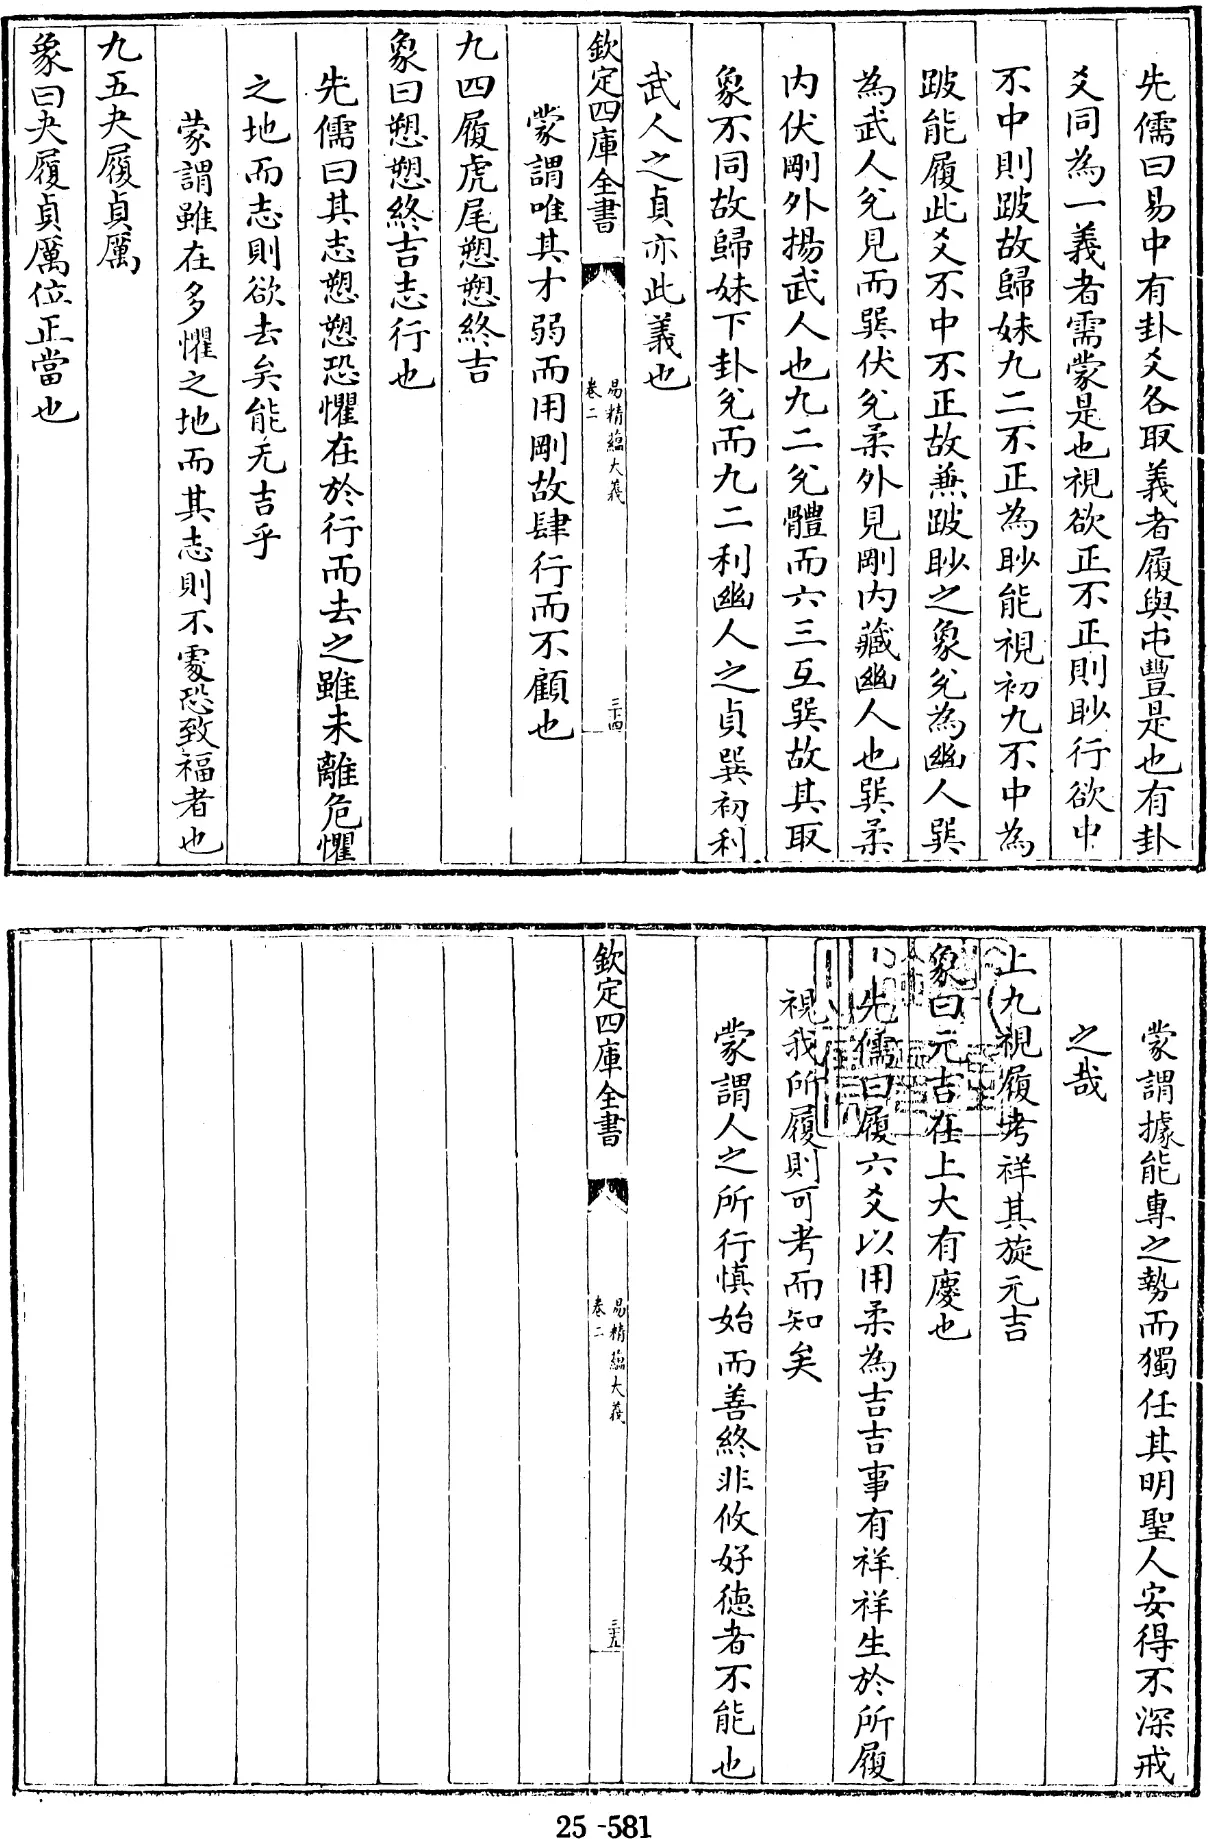 先儒曰易中有卦爻各取義者履與屯豐是也有卦
爻同為一義者需蒙是也視欲正不正則眇行欲中
不中則跛故歸妹九二不正為眇能視初九不中為
跛能履此爻不中不正故兼跛眇之象兊為幽人巽
為武人兊見而巽伏兊柔外見剛内藏幽人也巽柔
内伏剛外揚武人也九二兊體而六三互巽故其取
象不同故歸妹下卦兊而九二利幽人之貞巽初利
武人之貞亦此義也
欽定四庫全書
易精蘊大義
卷二
三十四
蒙謂唯其才弱而用剛故肆行而不顧也
九四履虎尾愬愬終吉
象曰愬愬終吉志行也
先儒曰其志愬愬恐懼在於行而去之雖未離危懼
之地而志則欲去矣能无吉乎
蒙謂雖在多懼之地而其志則不處恐致福者也
九五夬履貞厲
象曰夬履貞厲位正當也
蒙謂據能專之勢而獨任其明聖人安得不深戒
之哉
上九視履考祥其旋元吉
象曰元吉在上大有慶也
先儒曰履六爻以用柔為吉吉事有祥祥生於所履
視我所履則可考而知矣
蒙謂人之所行慎始而善終非攸好德者不能也
欽定四庫全書
易精蘊大義
卷二
三十五
25-581